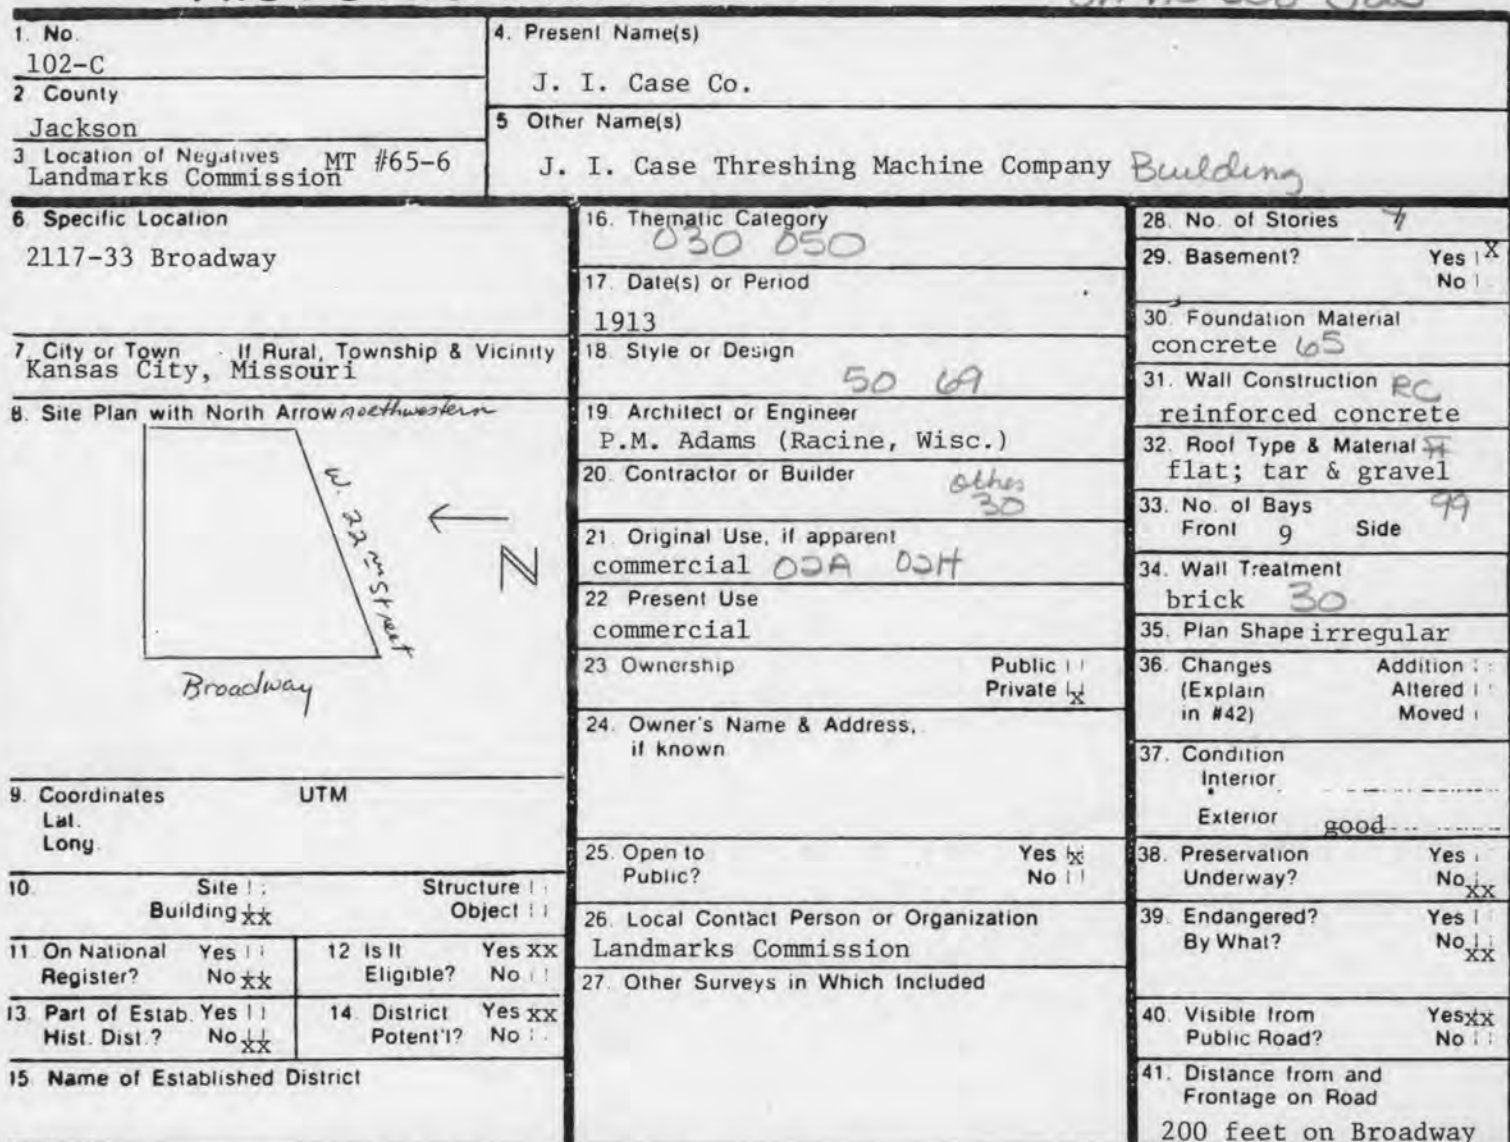 1. No.
102-C
2. County
Jackson
3 Location of Negatives MT #65-6
Landmarks Commission
4. Present Name(s)
J. I. Case Co.
5 Other Name(s)
J. I. Case Threshing Machine Company Building
6. Specific Location
2117-33 Broadway
7. City or Town If Rural, Township & Vicinity
Kansas City, Missouri
8. Site Plan with North Arrow
W. 22nd Street
N
Broadway
9. Coordinates UTM
Lat.
Long.
10. Site Structure
Building xx Object
11. On National Yes
Register? No xx
12 Is It Yes xx
Eligible? No
13. Part of Estab. Yes
Hist. Dist.? No xx
14. District Yes xx
Potent'l? No
15. Name of Established District
16. Thematic Category
030 050
17. Date(s) or Period
1913
18. Style or Design
50 69
19. Architect or Engineer
P.M. Adams (Racine, Wisc.)
20. Contractor or Builder other
30
21. Original Use, if apparent
commercial 02A 02H
22 Present Use
commercial
23 Ownership Public
Private x
24. Owner's Name & Address,
if known
25. Open to Yes x
Public? No
26. Local Contact Person or Organization
Landmarks Commission
27. Other Surveys in Which Included
28. No. of Stories 7
29. Basement? Yes X
No
30. Foundation Material
concrete 65
31. Wall Construction RC
reinforced concrete
32. Roof Type & Material
flat; tar & gravel
33. No. of Bays 99
Front 9 Side
34. Wall Treatment
brick 30
35. Plan Shape irregular
36. Changes Addition
(Explain Altered
in #42) Moved
37. Condition
Interior
Exterior good
38. Preservation Yes
Underway? No xx
39. Endangered? Yes
By What? No xx
40. Visible from Yes xx
Public Road? No
41. Distance from and
Frontage on Road
200 feet on Broadway